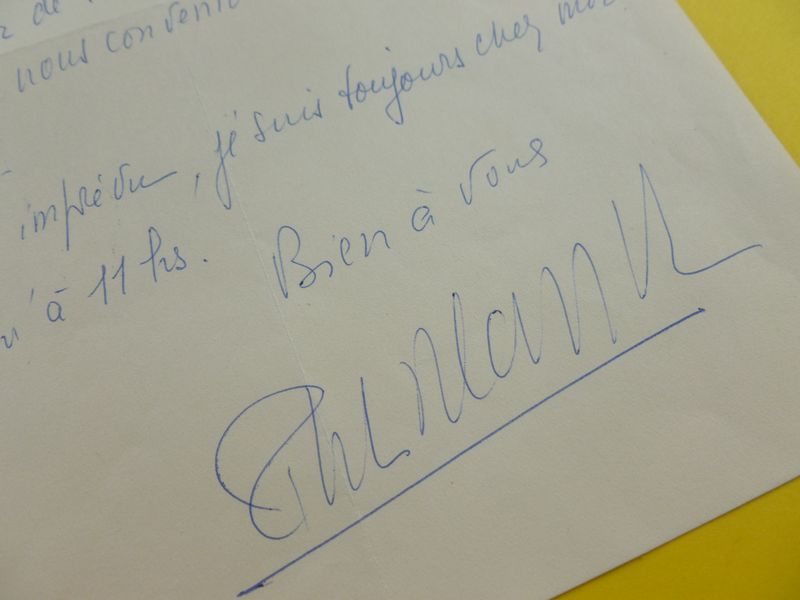 de
nous conveni
imprévu, je suis toujours chez moi
u'à 11 hs. Bien à vous